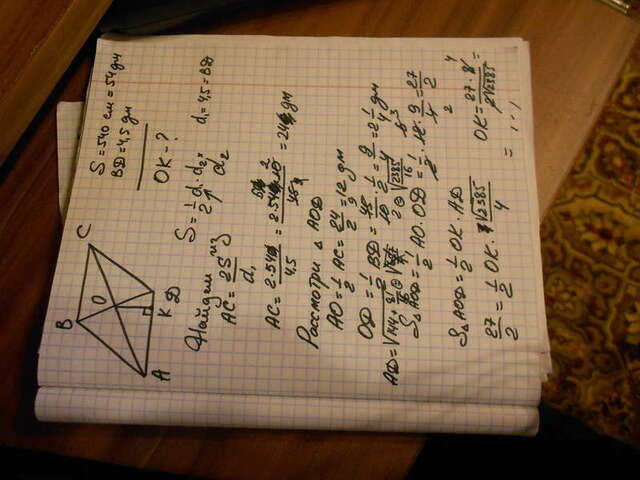 S = 540 см = 54 дм
BD = 4,5 дм
OK - ?
B
C
O
A
K
D
S = 1/2 d₁ · d₂, d₁ = 4,5 = BD
Найдём из
d₂
AC = 2S / d₁
AC = 2·540 / 4,5 = = 24 дм
Рассмотрим △ AOD
AO = 1/2 AC = 24/2 = 12 дм
OD = 1/2 BD = 45/10 · 1/2 = 9/4 = 2 1/4 дм
AD =
S△AOD = 1/2 AO · OD = 1/2 · 12 · 9/4 = 27/2
S△AOD = 1/2 OK · AD
27/2 = 1/2 OK · √2385 / 4
OK = 27·4 / √2385 =
= ...